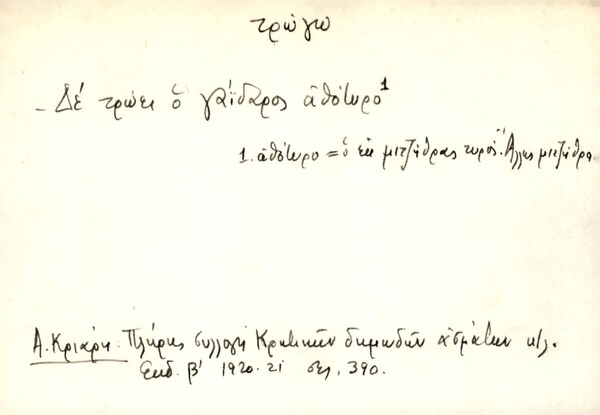 τρώγω
- Δέ τρώει ὁ γάϊδαρος ἀθότυρο¹
1. ἀθότυρο = ὁ ἐκ μιτζήθρας τυρός. Ἄλλως μιτζήθρα
Α. Κριάρη: Πλήρης συλλογή Κρητικῶν δημωδῶν ᾀσμάτων κ/λ.
Ἐκδ. β' 1920-21 σελ. 390.